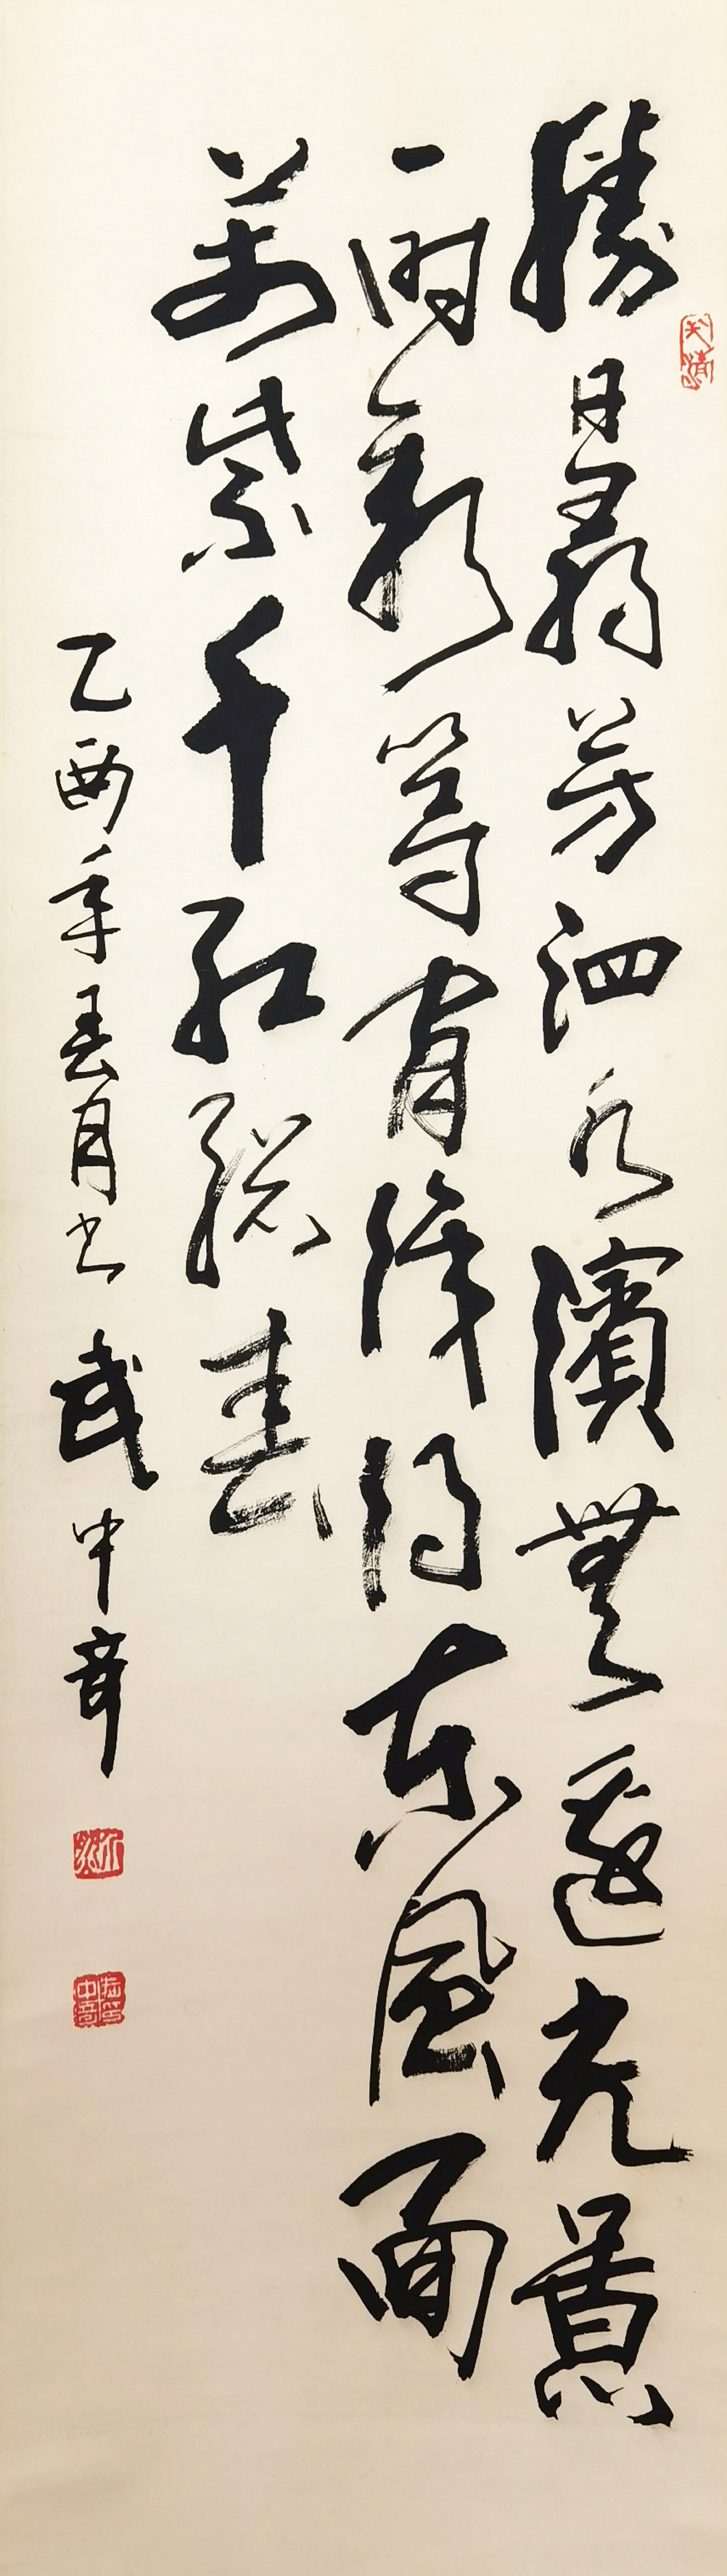 勝日尋芳泗水濱無邊光景
一時新等閒識得東風面
萬紫千紅總春
乙酉年春月書 武中奇